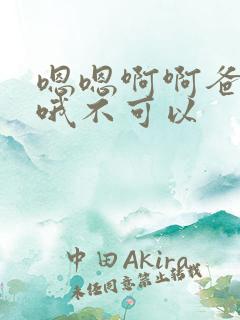 嗯嗯啊啊爸
哦不可以
中田AKira
未经同意禁止转载